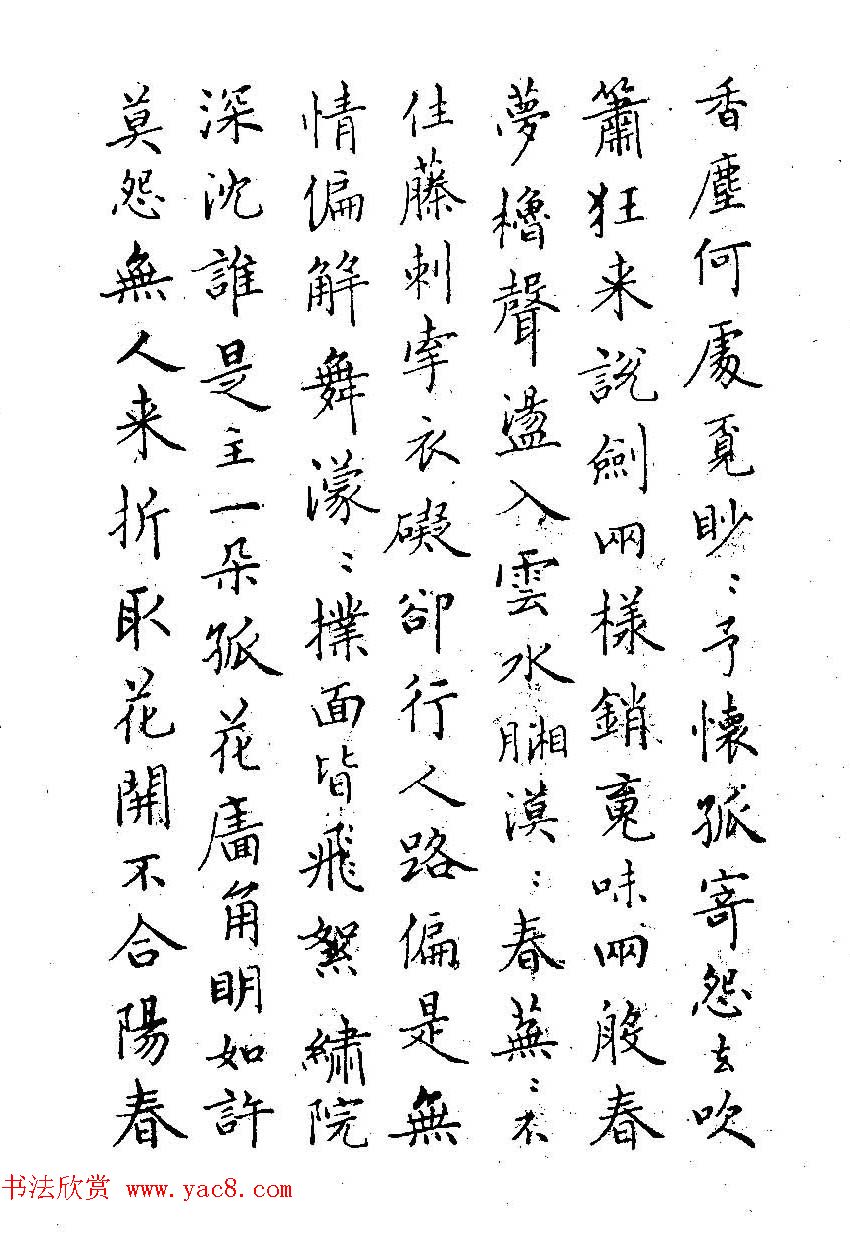 香塵何處覓眇〻予懷孤寄怨去吹
簫狂来說劍兩樣銷魂味兩般春
夢櫓聲盪入雲水緗漠〻春蕪〻不
住藤刺牽衣礙卻行人路偏是無
情偏解舞濛〻撲面皆飛絮繡院
深沈誰是主一朵孤花廧角明如許
莫怨無人来折取花開不合陽春
书法欣赏 www.yac8.com